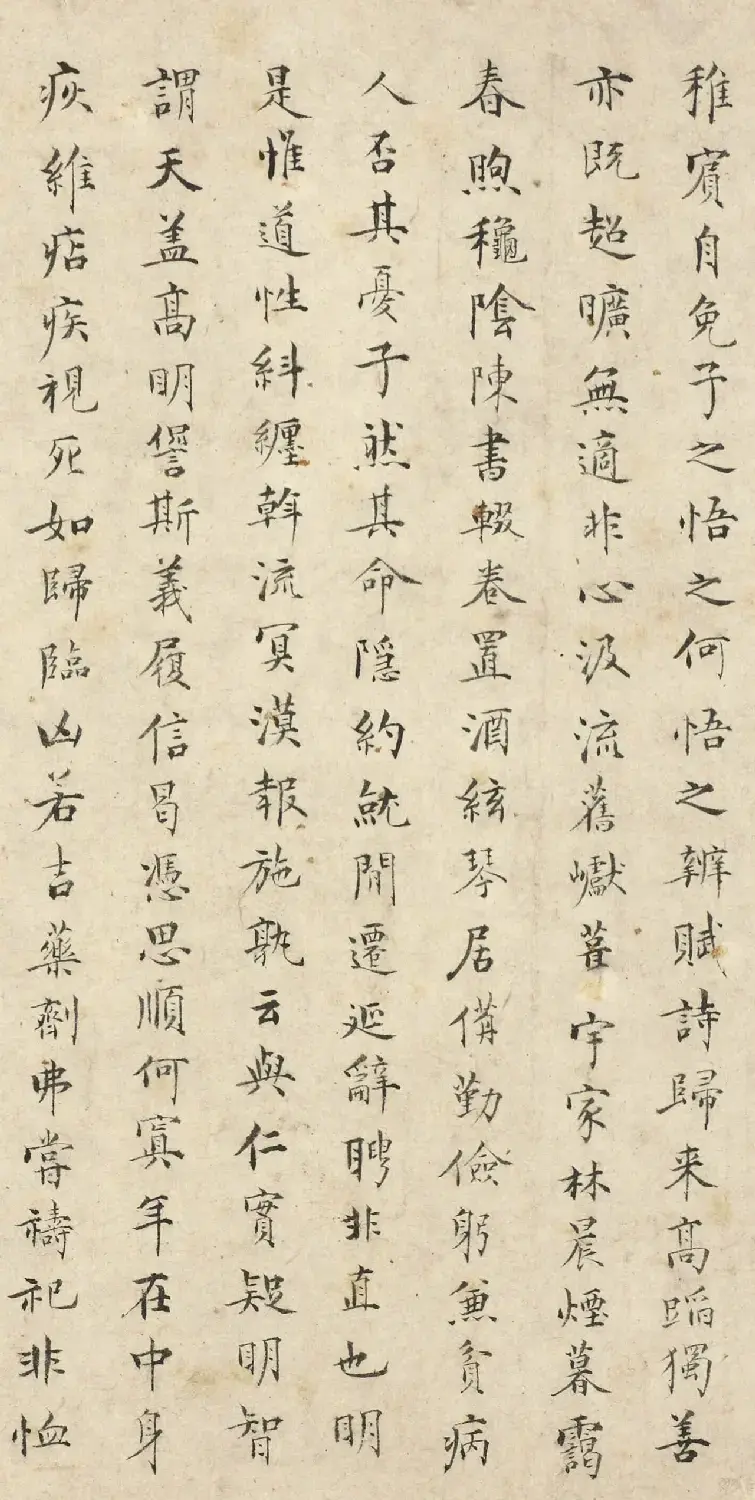 稚賔自免子之悟之何悟之辨賦詩歸来髙蹈獨善
亦既超曠無適非心汲流舊巘葺宇家林晨煙暮靄
春煦穐陰陳書輟卷置酒絃琴居備勤儉躬兼貧病
人否其憂子然其命隱約就閒遷延辭聘非直也明
是惟道性糾纏斡流冥漠報施孰云與仁實疑明智
謂天盖髙明諐斯義履信曷憑思順何寘年在中身
疢維痁疾視死如歸臨凶若吉藥劑弗嘗禱祀非恤